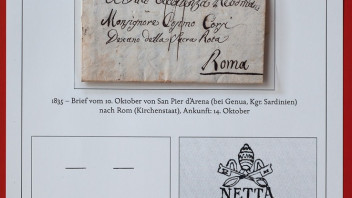 Monsignore Cosimo Corsi
Decano della Sacra Rota
Roma
1835 – Brief vom 10. Oktober von San Pier d'Arena (bei Genua, Kgr. Sardinien)
nach Rom (Kirchenstaat), Ankunft: 14. Oktober
NETTA